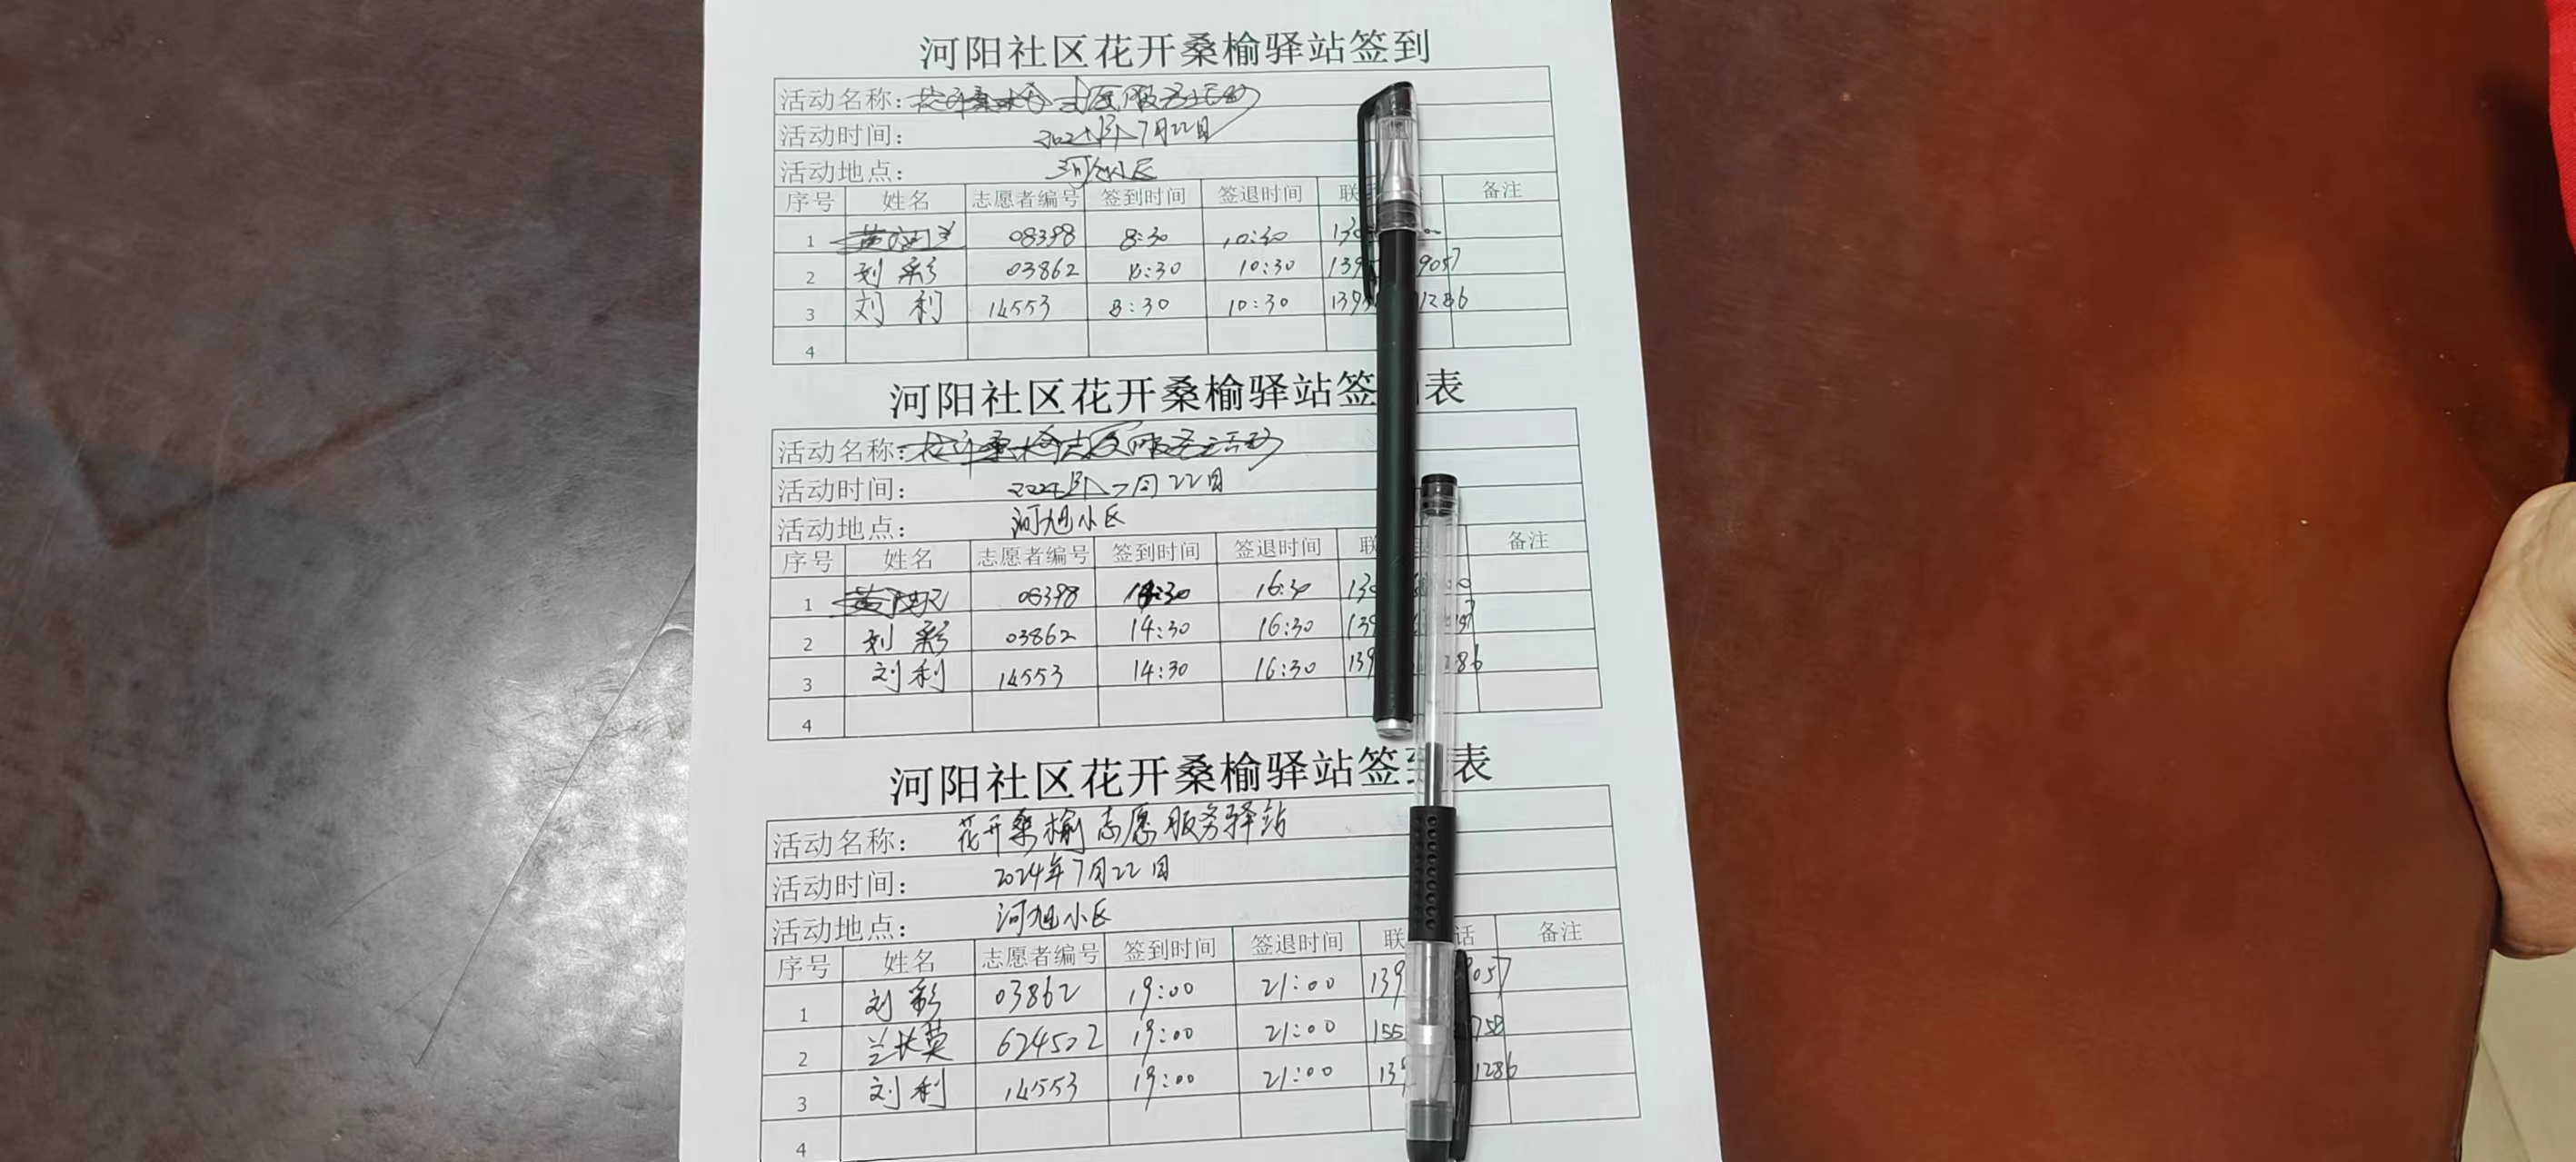 河阳社区花开桑榆驿站签到
活动名称：花开桑榆志愿服务活动
活动时间： 2024年7月22日
活动地点： 河旭小区
序号 姓名 志愿者编号 签到时间 签退时间 联 备注
1 08398 8:30 10:30 130
2 刘彩 03862 8:30 10:30 139 9057
3 刘利 14553 8:30 10:30 139 1286
4
河阳社区花开桑榆驿站签 表
活动名称：花开桑榆志愿服务活动
活动时间： 2024年7月22日
活动地点： 河旭小区
序号 姓名 志愿者编号 签到时间 签退时间 联 备注
1 08398 14:30 16:30 130
2 刘彩 03862 14:30 16:30 139
3 刘利 14553 14:30 16:30 139 286
4
河阳社区花开桑榆驿站签到表
活动名称： 花开桑榆志愿服务驿站
活动时间： 2024年7月22日
活动地点： 河旭小区
序号 姓名 志愿者编号 签到时间 签退时间 联 话 备注
1 刘彩 03862 19:00 21:00 139 9057
2 兰长英 624502 19:00 21:00 155 758
3 刘利 14553 19:00 21:00 139 1286
4